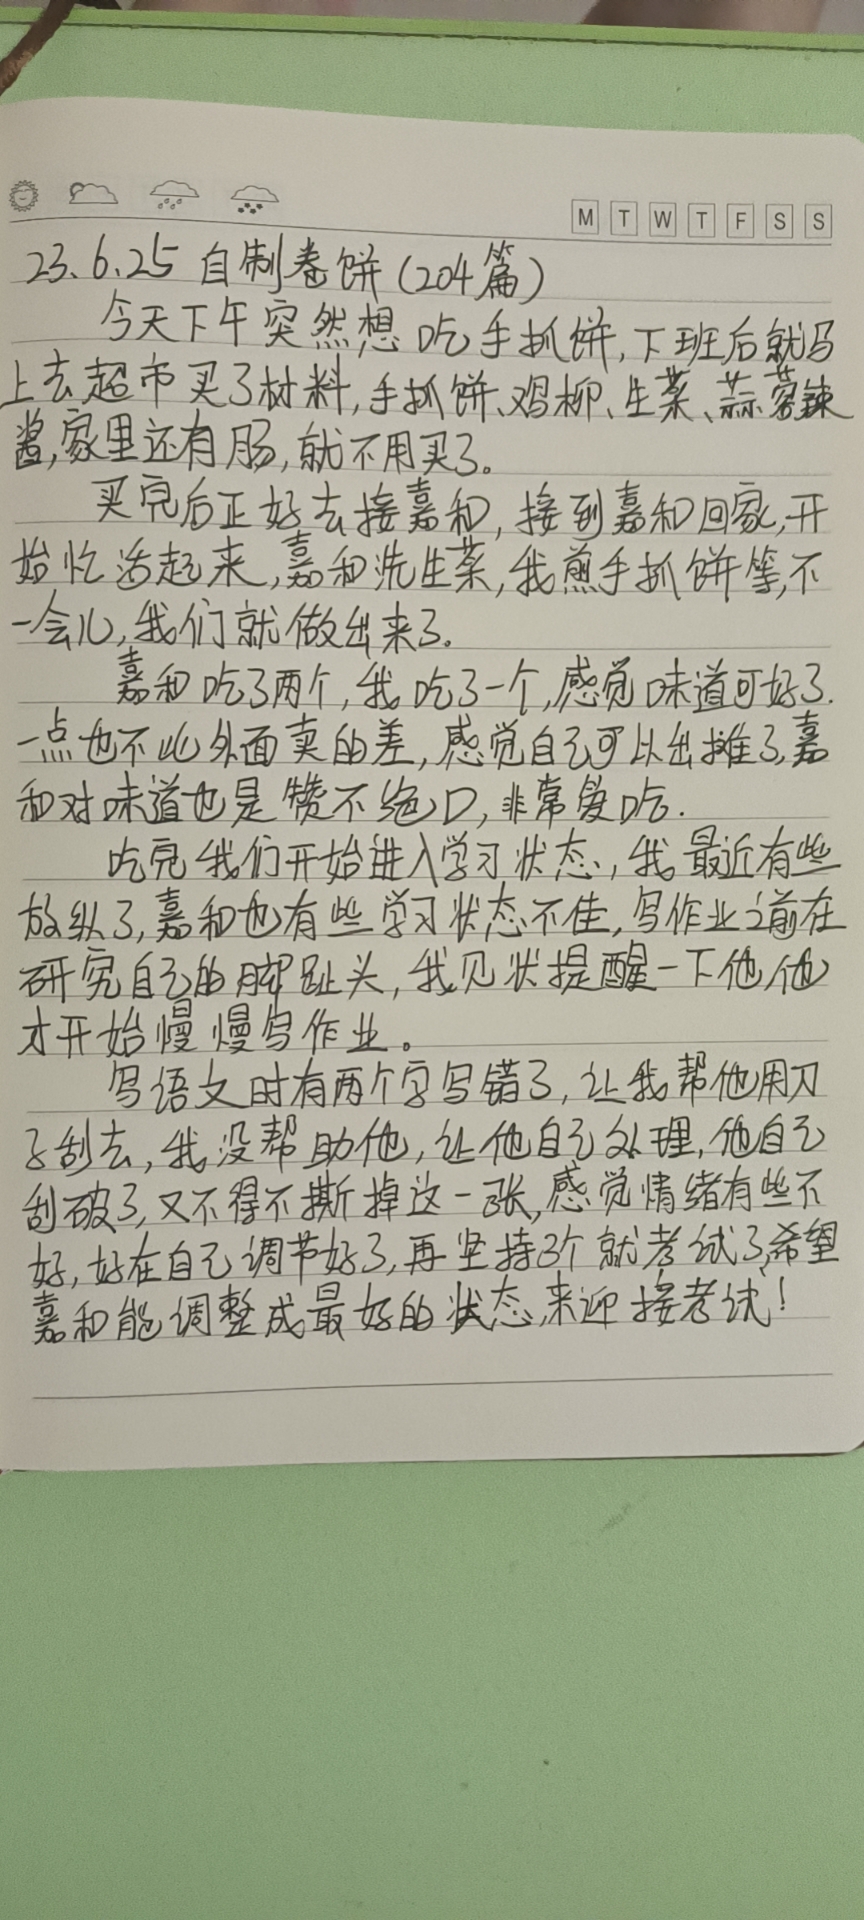 M T W T F S S
23.6.25 自制卷饼(204篇)
今天下午突然想吃手抓饼,下班后就马
上去超市买了材料,手抓饼、鸡柳、生菜、蒜蓉辣
酱,家里还有肠,就不用买了。
买完后正好去接嘉和,接到嘉和回家,开
始忙活起来,嘉和洗生菜,我煎手抓饼等,不
一会儿,我们就做出来了.
嘉和吃了两个,我吃了一个,感觉味道可好了.
一点也不比外面卖的差,感觉自己可以出摊了,嘉
和对味道也是赞不绝口,非常爱吃.
吃完我们开始进入学习状态,我最近有些
放纵了,嘉和也有些学习状态不佳,写作业之前在
研究自己的脚趾头,我见状提醒一下他,他
才开始慢慢写作业。
写语文时有两个字写错了,让我帮他用刀
子刮去,我没帮助他,让他自己处理,他自己
刮破了,又不得不撕掉这一张,感觉情绪有些不
好,好在自己调节好了,再坚持3个就考试了,希望
嘉和能调整成最好的状态,来迎接考试!